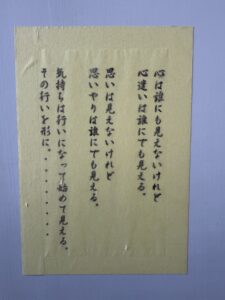 心は誰にも見えないけれど
心遣いは誰にでも見える。
思いは見えないけれど
思いやりは誰にでも見える。
気持ちは行いになって始めて見える。
その行いを形に。・・・・・・・